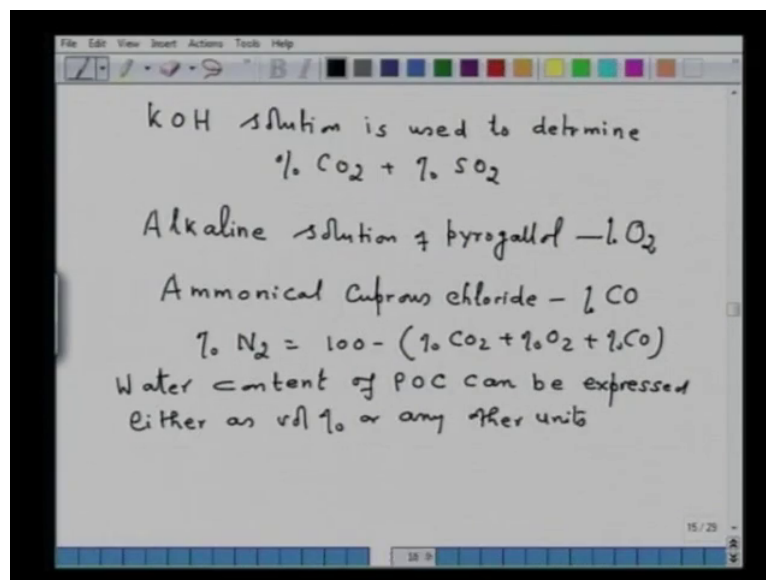 File Edit View Insert Actions Tools Help
KOH solution is used to detrmine
% CO2 + % SO2
Alkaline solution of pyrogallol — % O2
Ammonical Cuprous chloride - % CO
% N2 = 100 - (% CO2 + % O2 + % CO)
Water content of POC can be expressed
either as vol % or any other units
15 / 29